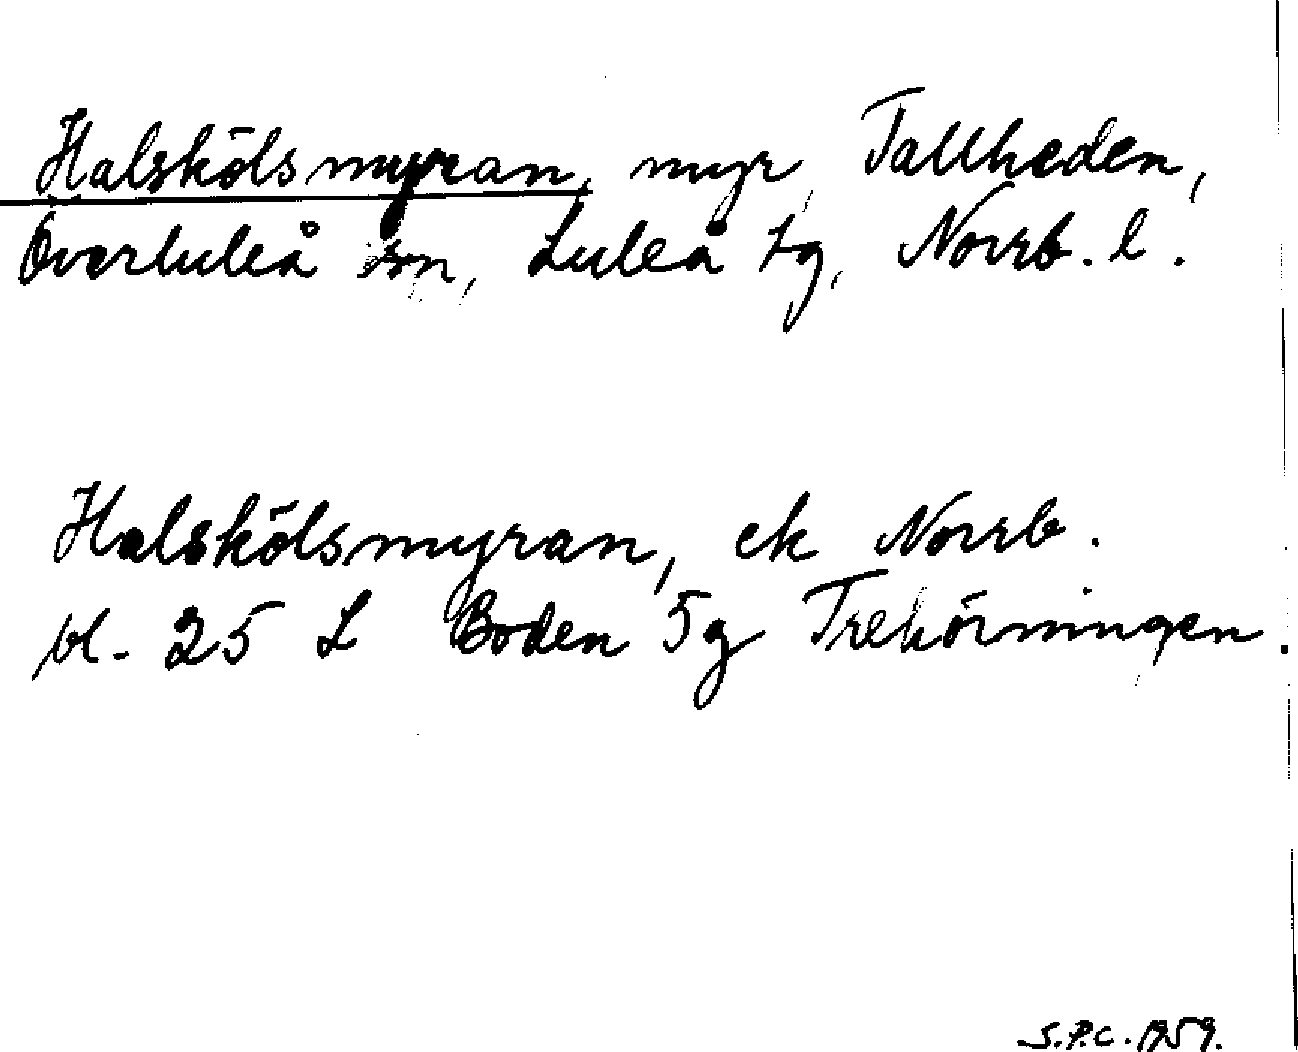 Halskölsmyran, myr, Tallheden,
Överluleå sn, Luleå tg, Norrb. l.
Halskölsmyran, ek Norrb.
bl. 25 L Boden 5g Trehörningen.
S.P.C. 1959.